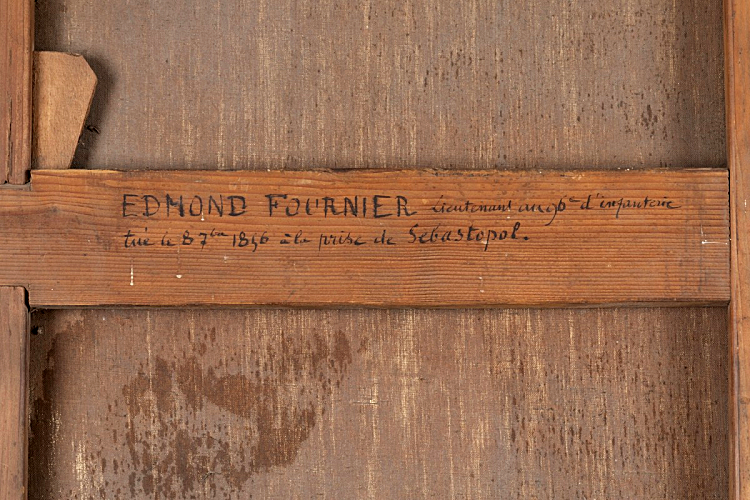 EDMOND FOURNIER lieutenant au 96e d'infanterie
tué le 8 7bre 1856 à la prise de Sébastopol.